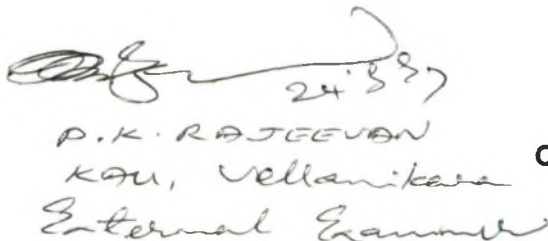 24.3.97
P.K. RAJEEVAN
KAU, Vellanikara
External Examiner